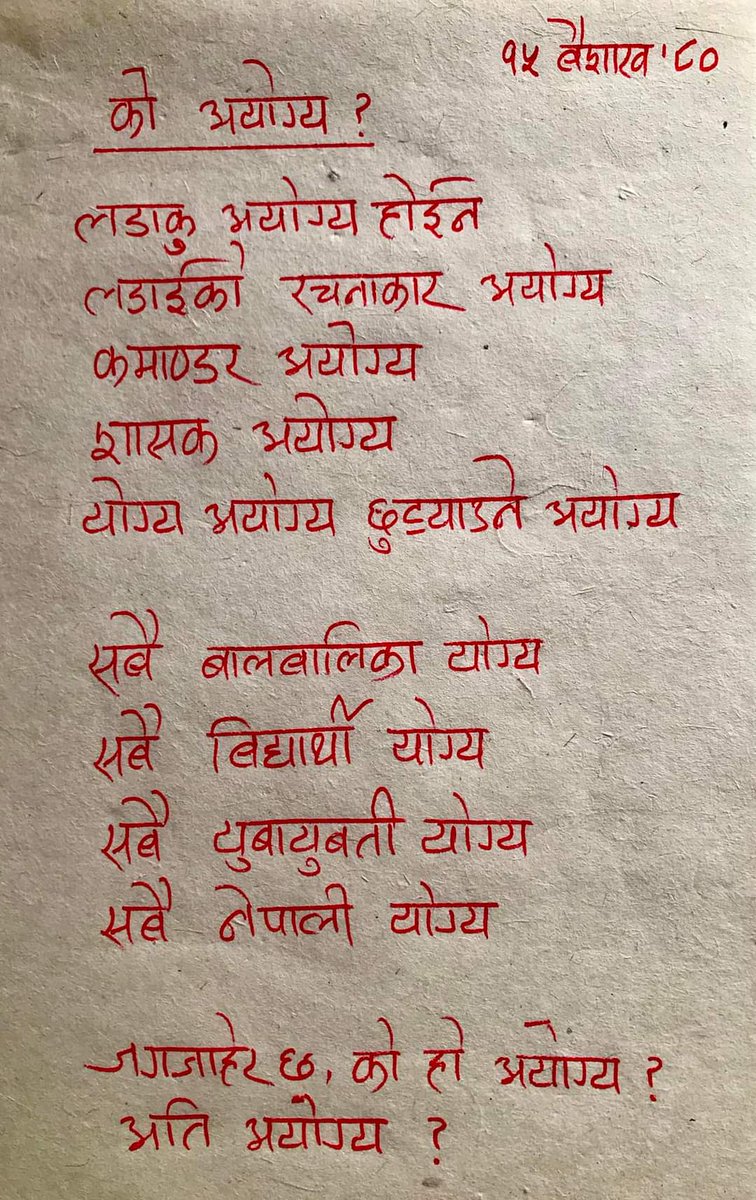 १५ बैशाख '८०
को अयोग्य ?
लडाकु अयोग्य होईन
लडाईको रचनाकार अयोग्य
कमाण्डर अयोग्य
शासक अयोग्य
योग्य अयोग्य छुट्याउने अयोग्य
सबै बालबालिका योग्य
सबै बिद्यार्थी योग्य
सबै युबायुबती योग्य
सबै नेपाली योग्य
जगजाहेर छ, को हो अयोग्य ?
अति अयोग्य ?